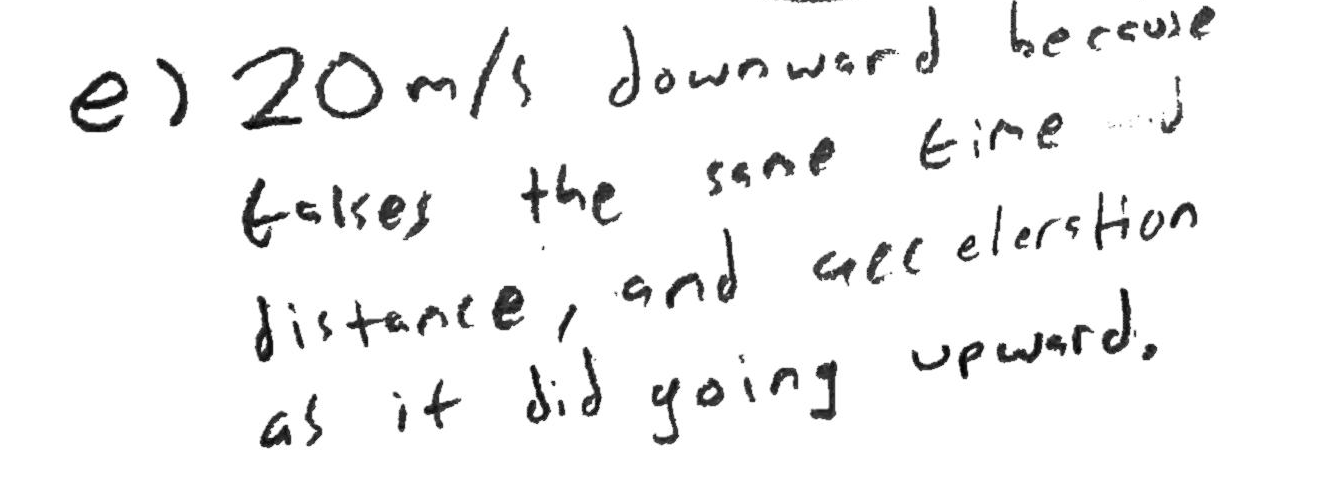 e) 20 m/s downward because
takes the same time
distance, and acceleration
as it did going upward.